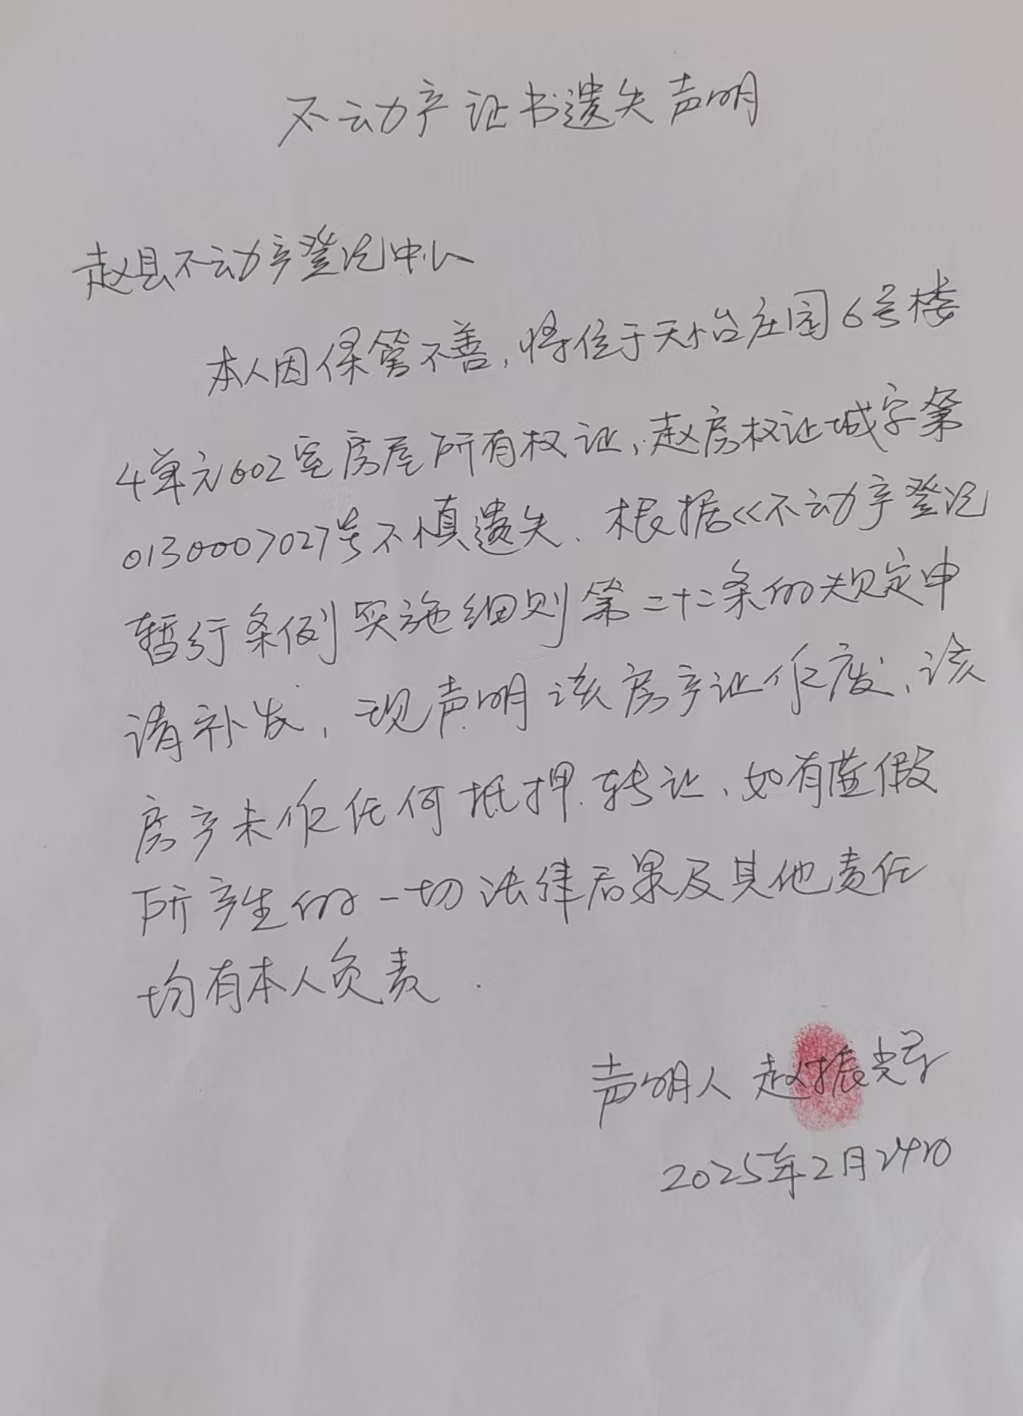 不动产证书遗失声明
赵县不动产登记中心
本人因保管不善,将位于天台庄园6号楼
4单元602室房屋所有权证,赵房权证城字第
0130007027号不慎遗失.根据《不动产登记
暂行条例实施细则第二十二条的规定申
请补发,现声明该房产证作废,该
房产未作任何抵押.转让、如有虚假
所产生的一切法律后果及其他责任
均有本人负责.
声明人 赵振辉
2025年2月24日